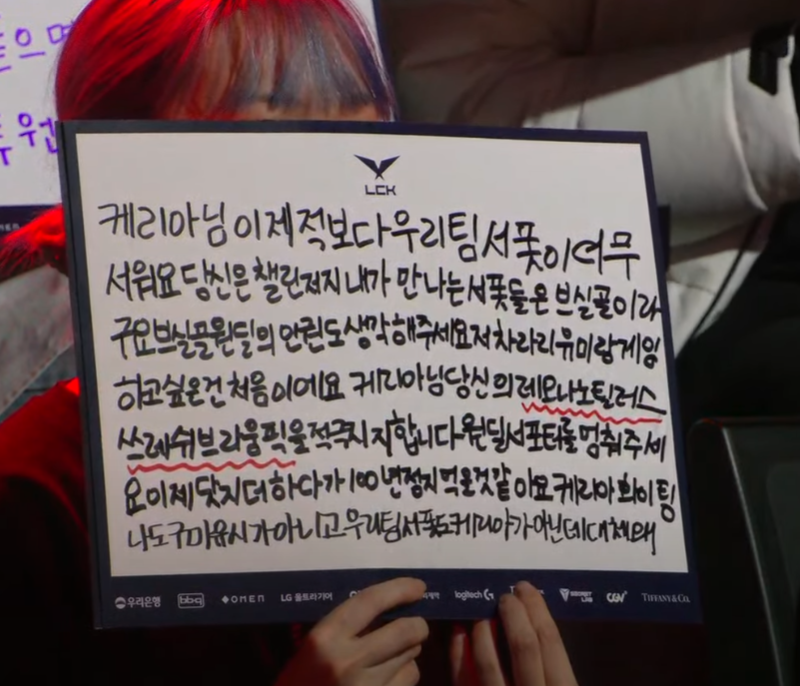 LCK
케리아님 이제 적보다 우리팀 서폿이 더무
서워요 당신은 챌린저지 내가 만나는 서폿들은 브실골이라
구요 브실골 원딜의 안린도 생각해주세요 저 차라리 유미랑 게임
하고 싶은건 처음이에요 케리아님 당신의 레오나 노틸러스
쓰레쉬 브라움 픽을 적극 지지합니다 원딜 서포터를 멈춰주세
요 이제 닷지 더 하다가 100번 정지 먹을것 같아요 케리아 화이팅
나도 구마유시가 아니고 우리팀 서폿도 케리아가 아닌데 대체 왜
우리은행 bbq OMEN LG 울트라기어 logitech G SECRET LAB CGV TIFFANY & CO.